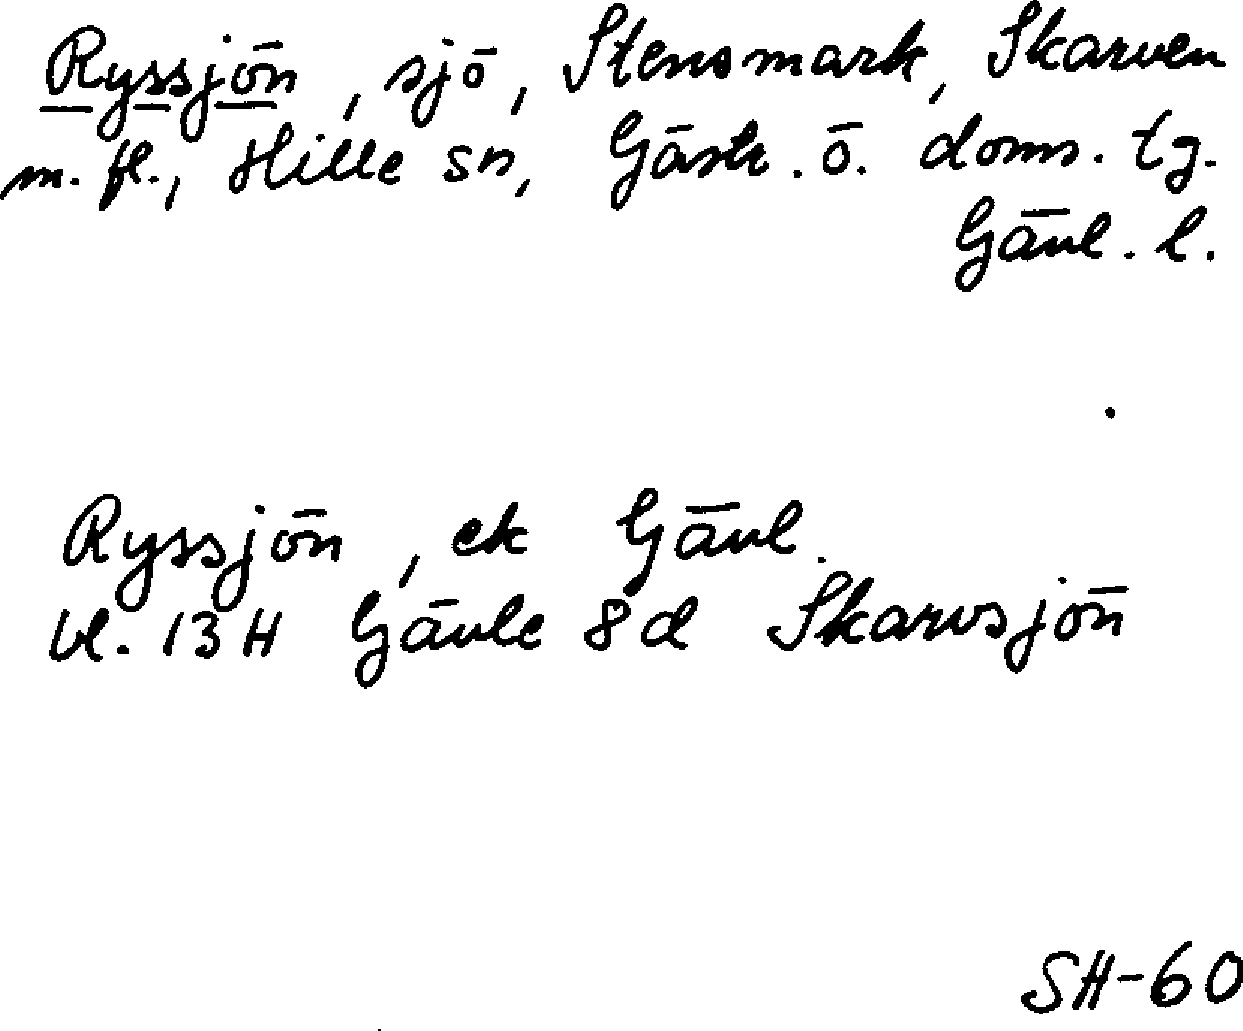 Ryssjön, sjö, Stensmark, Skarven
m. fl., Hille sn, Gästr. ö. doms. tg.
Gävl. l.
Ryssjön, ek Gävl.
bl. 13H Gävle 8d Skarvsjön
SH-60